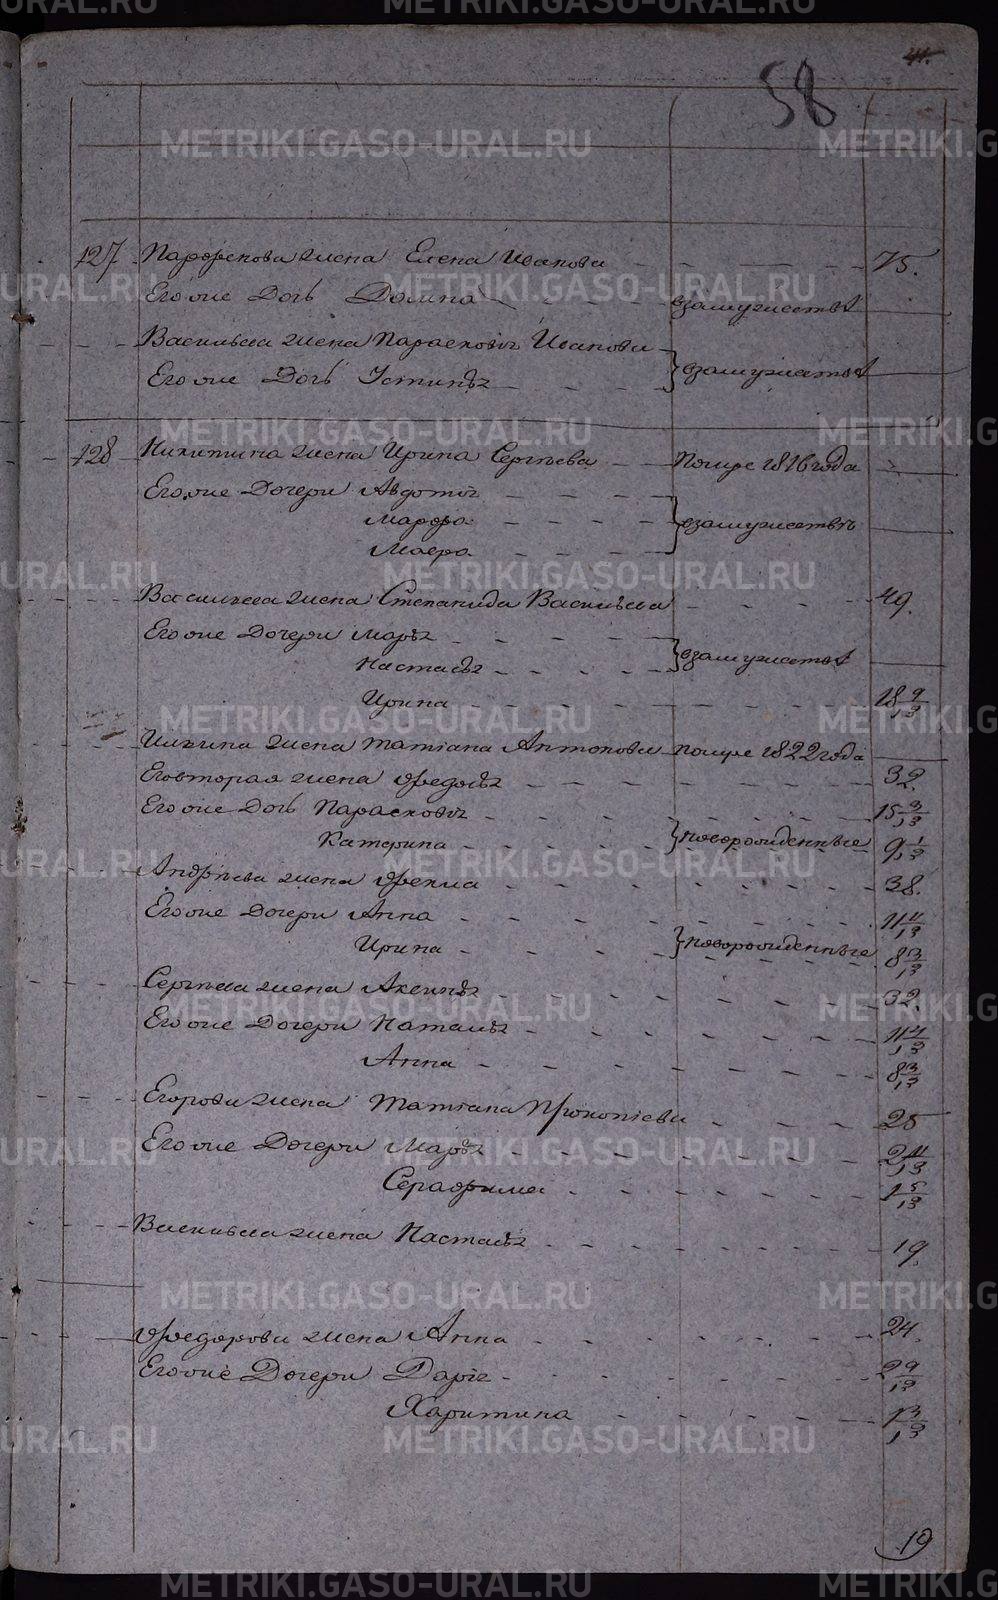 41.
58
127 Парфенова жена Елена Иванова 75.
Его же Дочь Домна взамужестве
Васильева жена Парасковiя Иванова
Его же Дочь Устинья взамужестве
128 Никитина жена Ирина Сергѣева Помре 1816 года
Его же Дочери Авдотiя
Марфа взамужествѣ
Мавра
Васильева жена Степанида Васильева 49.
Его же Дочери Марья
Настасья взамужестве
Ирина 18 9/13
Ильина жена Татiана Антонова помре 1822 года
Его вторая жена Федосья 32.
Его же Дочь Парасковiя 15 3/13
Катерина новорожденные 9 1/13
Андрѣева жена Фекла 38.
Его же Дочери Анна 11 11/13
Ирина новорожденные 8 3/13
Сергѣева жена Аксинья 32.
Его же Дочери Наталья 11 11/13
Анна 8 3/13
Егорова жена Татiана Прокопiева 25
Его же Дочери Марья 2 11/13
Серафима 1 5/13
Васильева жена Настасья 19.
Федорова жена Анна 24.
Его же Дочери Дарiя 2 9/13
Харитина 1 3/13
19
METRIKI.GASO-URAL.RU